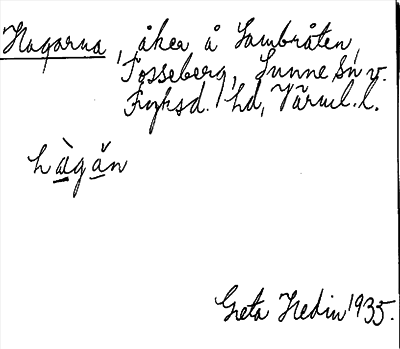 Hagarna, åker å Lambråten,
Fosseberg, Sunne sn v.
Fryksd. hd, Värml. l.
hàgǎn
Greta Hedin 1935.